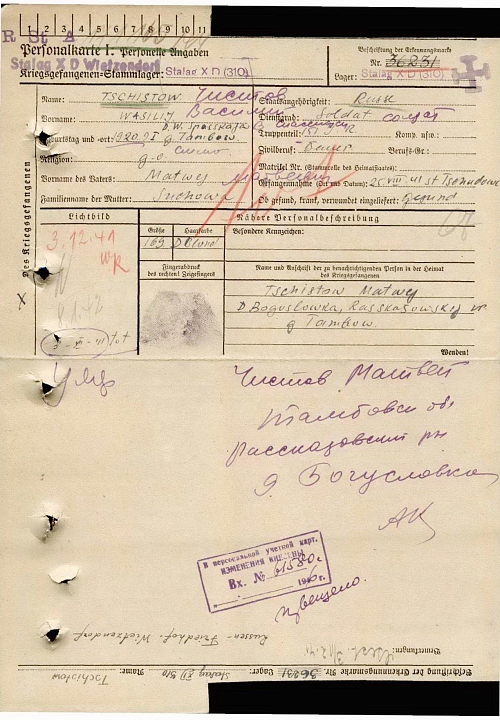 1 2 3 4 5 6 7 8 9 10 11
Personalkarte I: Personelle Angaben
Stalag X D Wietzendorf
Kriegsgefangenen-Stammlager: Stalag X D (310)
Beschriftung der Erkennungsmarke
Nr. 36231
Lager: Stalag X D (310)
Des Kriegsgefangenen
Name: TSCHISTOW Чистов
Vorname: WASILIJ Василий
Geburtstag und -ort: g. Tambow
Religion: g.o.
Vorname des Vaters: Matwej
Familienname der Mutter: Suchowa
Staatsangehörigkeit: Russ
Dienstgrad: Soldat солдат
Truppenteil: Komp. usw.:
Zivilberuf: Bauer Berufs-Gr.:
Matrikel Nr. (Stammrolle des Heimatstaates):
Gefangennahme (Ort und Datum): 25 VIII 41 st Tschudowo
Ob gesund, krank, verwundet eingeliefert: gesund
Lichtbild
Nähere Personalbeschreibung
Größe Haarfarbe Besondere Kennzeichen:
169 D Blond
3.12.41
Fingerabdruck
des rechten! Zeigefingers
Name und Anschrift der zu benachrichtigenden Person in der Heimat
des Kriegsgefangenen
Tschistow Matwej
D Boguslowka, Rasskasowskij
g Tambow.
X
Wenden!
умер
Чистов Матвей
Тамбовск об.
Рассказовский рн
д. Богусловка
АК
В персональной учетной карт.
ИЗМЕНЕНИЯ ВНЕСЕНЫ
Вх. № 61580
194 г.
Russen-Friedhof Wietzendorf
Bemerkungen:
Beschriftung der Erkennungsmarke Nr. 36231 Lager: Stalag X D 310 Name: Tschistow